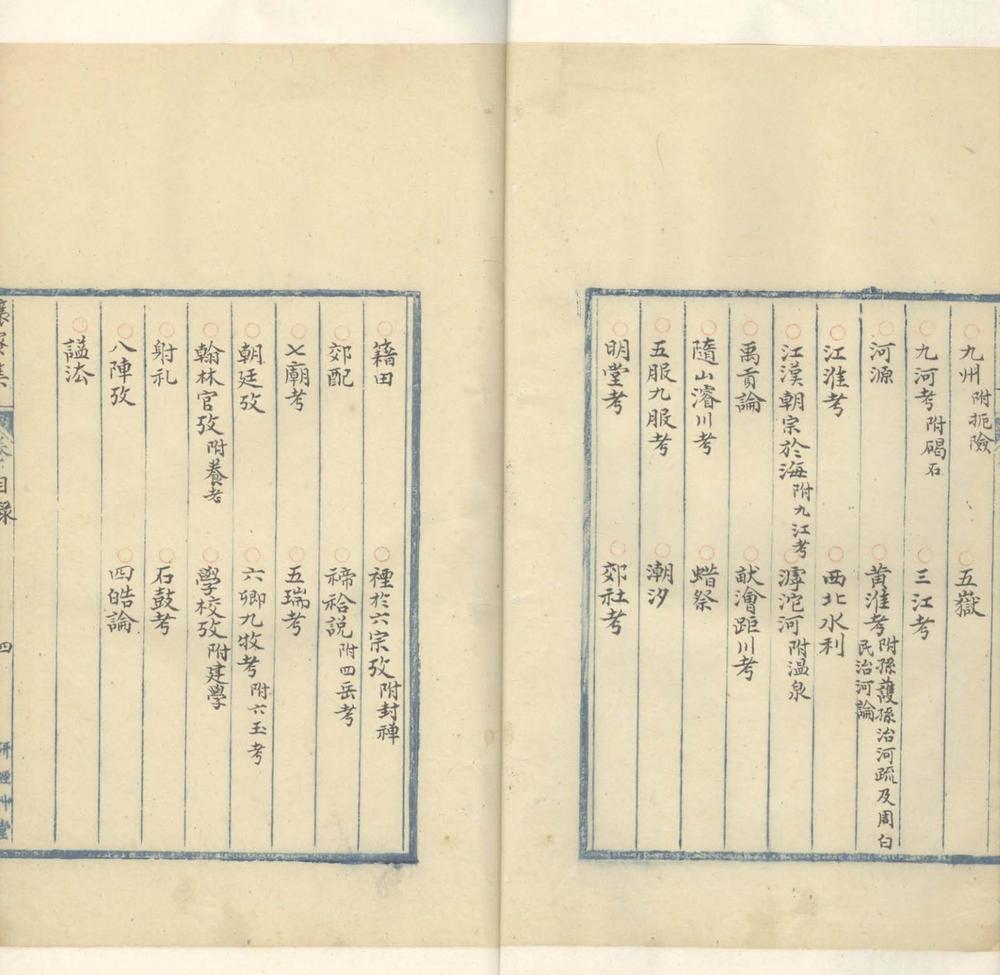 九州附扼險　五嶽
九河考附碣石　三江考
河源　黄淮考附孫護孫治河疏及周白民治河論
江淮考　西北水利
江漢朝宗於海附九江考　滹沱河附温泉
禹貢論　畎澮距川考
隨山濬川考　蜡祭
五服九服考　潮汐
明堂考　郊社考
籍田　禋於六宗攷附封禅
郊配　禘祫説附四岳考
七廟考　五瑞考
朝廷攷　六卿九牧考附六玉考
翰林官攷附養老　學校攷附建學
射礼　石鼓考
八陣攷　四皓論
謚法
目録
四